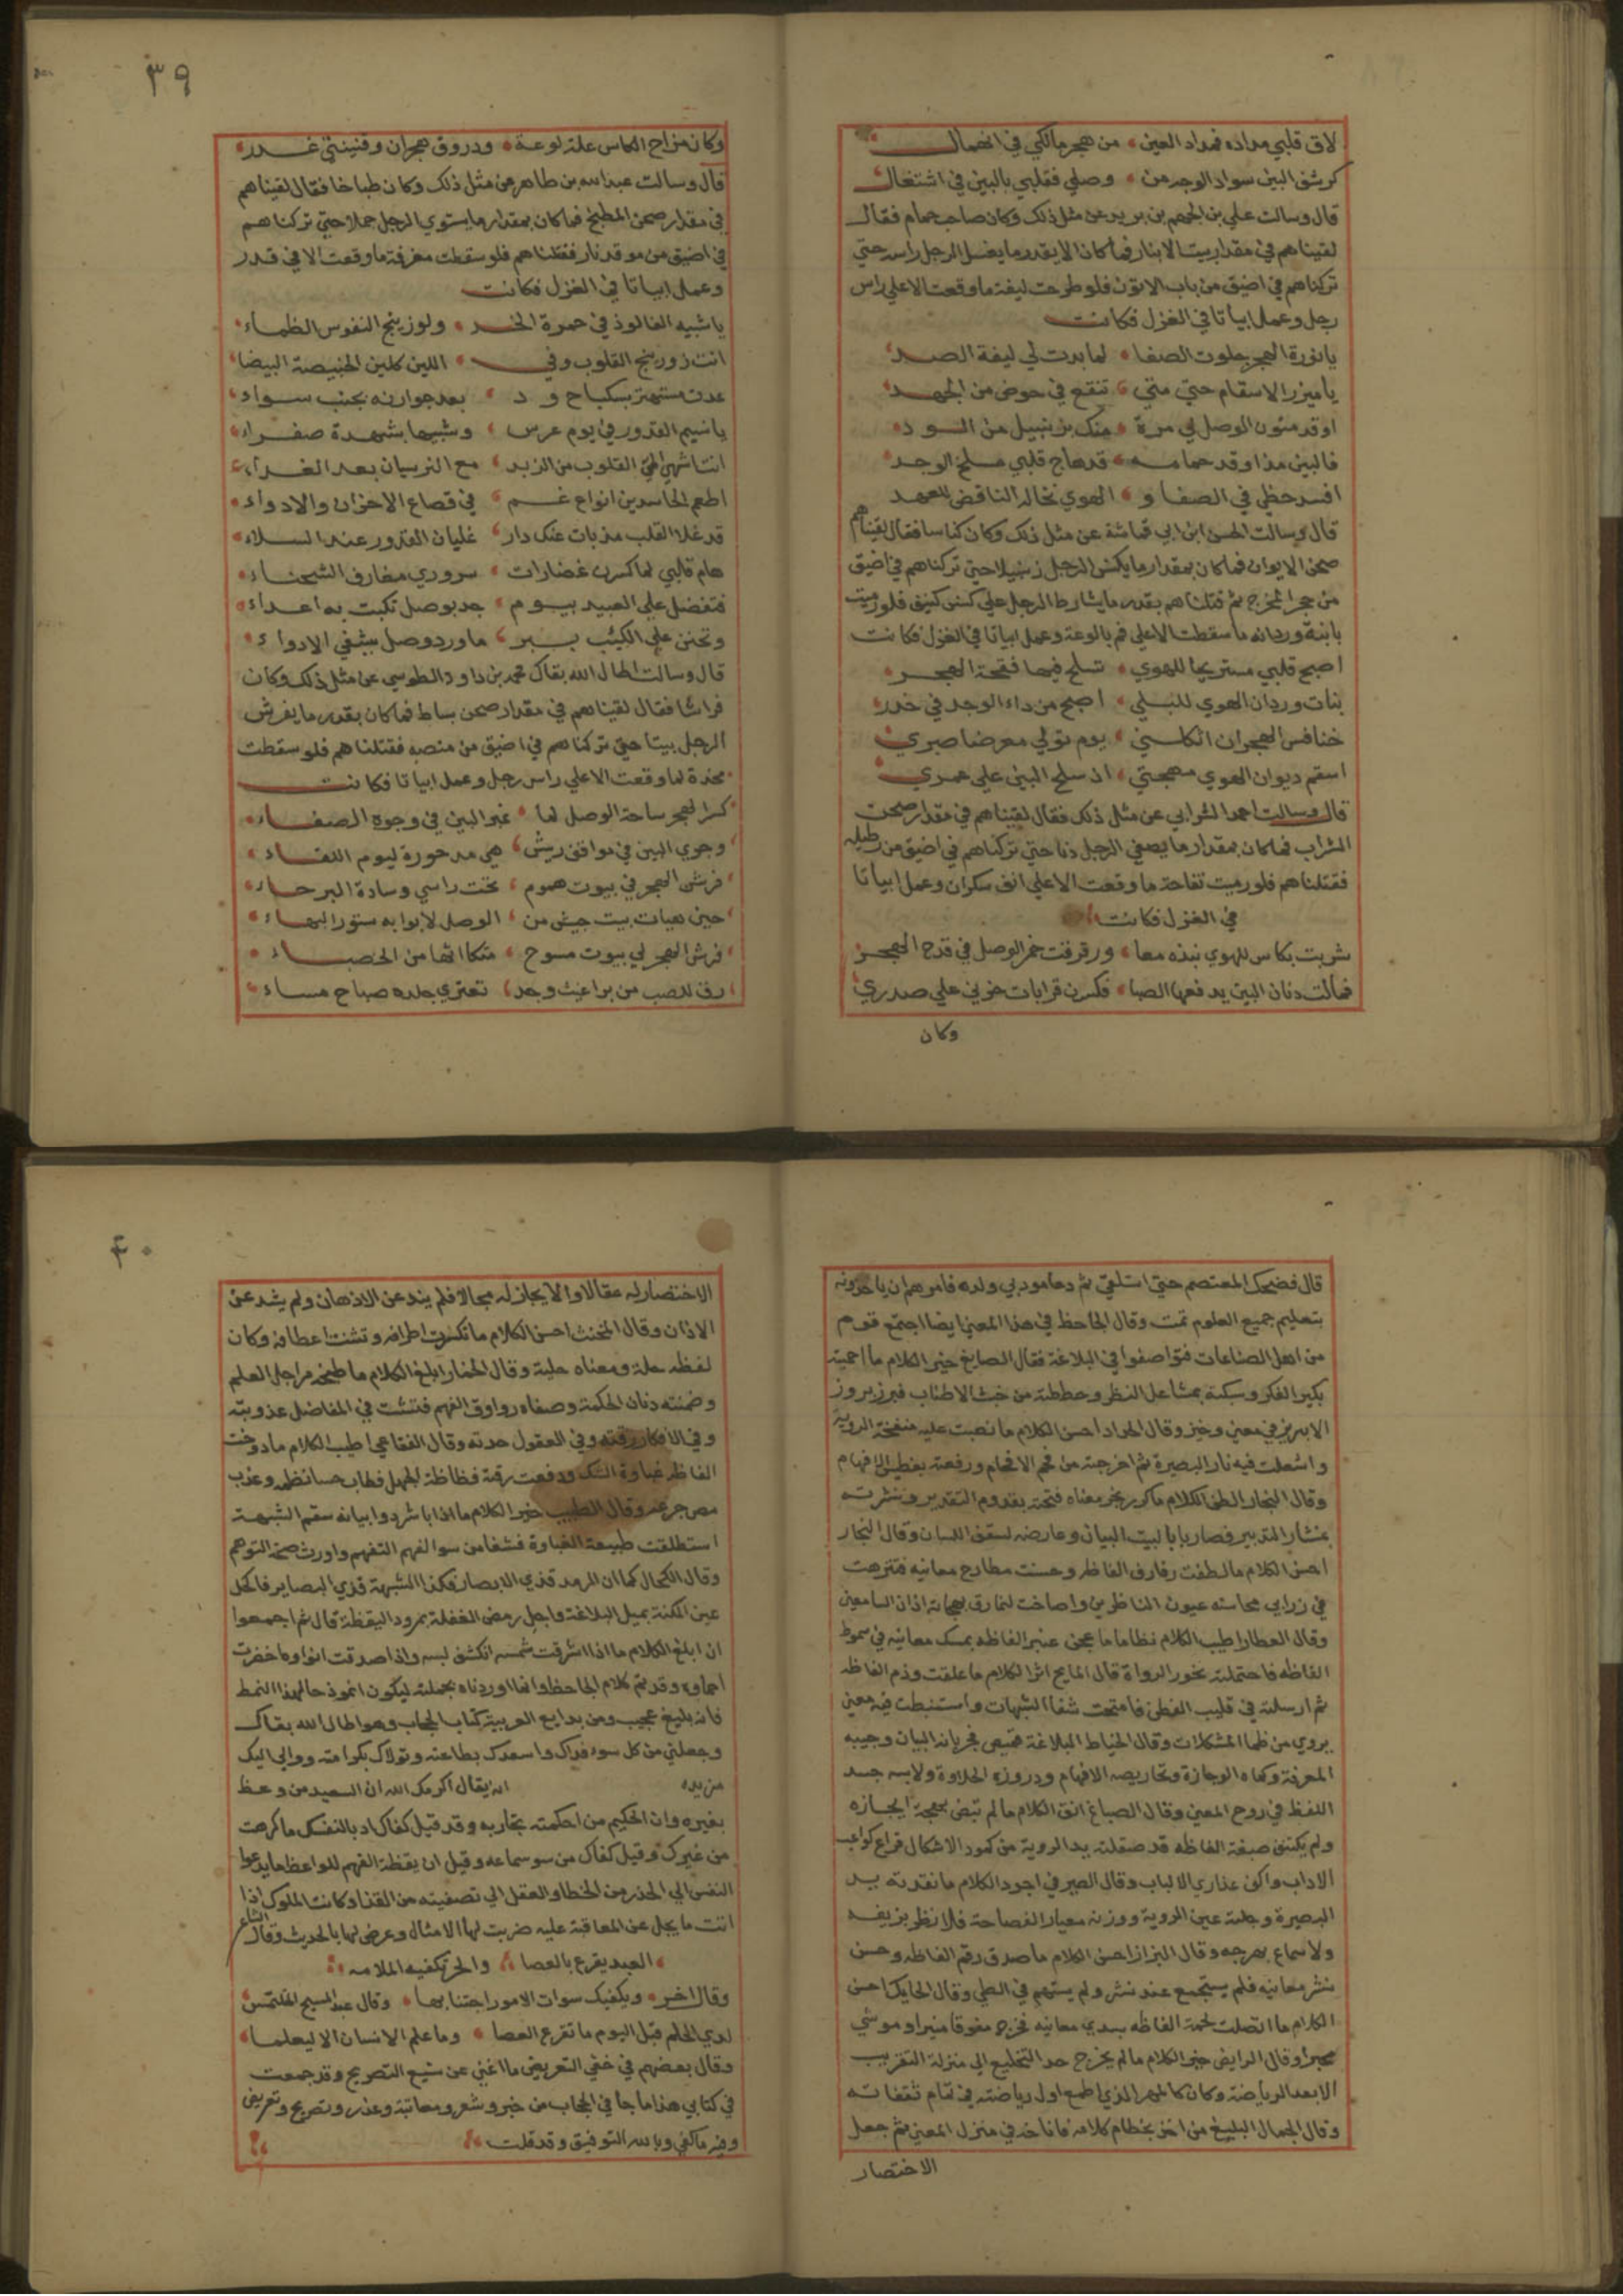 لاق قلبي مداده فمداد العين من هجر مالكي في انهمال
كرشق البين سواد الوجد من وصلي فقلبي بالبين في اشتغال
قال وسالت علي بن الجهم بن بريد عن مثل ذلك وكان صاحب حمام فقال
لقيناهم في مقدار بيت الانبار فما كان الا بقدر ما يغسل الرجل راسه حتي
تركناهم في اضيق من باب الاتون فلو طرحت ليفة ما وقعت الا علي راس
رجل وعمل ابياتا في الغزل فكانت
يا نورة الهجر حلوت الصفا لما بدت لي ليفة الصد
يا ميزر الاسقام حتي متي تنقع في حوض من الجهد
اوقد متون الوصل لي مرة منك بزنبيل من الود
فالبين مذ اوقد حمامه قد هاج قلبي مسلخ الوجد
افسد خطي في الصفا و الهوي نخالة الناقض للعهد
قال وسالت الحسن ابن ابي قماشة عن مثل ذلك وكان كناسا فقال لقيناهم
صحن الايوان فما كان بمقدار ما يكنس الرجل زنبيلا حتي تركناهم في اضيق
من جحر المخرج ثم قتلناهم بقدر ما يشارط الرجل علي كنس كنيف فلو رميت
بابنة وردانه ما سقطت الا علي فم بالوعة وعمل ابياتا في الغزل فكانت
اصبح قلبي مستريحا للهوي تسلح فيها فقحة الهجر
بنات وردان الهوي للبلي اصبح من داء الوجد في خدر
خنافس الهجران اثكلنني يوم تولي معرضا صبري
اسقم ديوان الهوي مهجتي اذ سلح البين علي عمري
قال وسالت احمد الشرابي عن مثل ذلك فقال لقيناهم في مقدار صحن
الشراب فما كان بمقدار ما يصفي الرجل دنا حتي تركناهم في اضيق من رطلية
فقتلناهم فلو رميت تفاحة ما وقعت الا علي انف سكران وعمل ابياتا
في الغزل فكانت
شربت بكاس للهوي نبذه معا ورقرقت خمر الوصل في قدح الهجر
فمالت دنان البين يدفعها الصبا فكسرن قرابات حزني علي صدري
وكان
٣٩
وكان مزاج الكاس علة لوعة ودروق هجران وقنينتي غدر
قال وسالت عبد الله بن طاهر عن مثل ذلك وكان طباخا فقال لقيناهم
في مقدار صحن المطبخ فما كان بمقدار ما يستوي الرجل حملا حتي تركناهم
في اضيق من موقد نار فقتلناهم فلو سقطت مغرفة ما وقعت الا في قدر
وعمل ابياتا في الغزل فكانت
يا شبيه الفالوذ في حمرة الخد ولوزينج النفوس الظماء
انت زورينج القلوب وفي اللين كلين الخبيصة البيضا
عدت مستهتر بسكباج و د بعد جوارنه بجنب سواء
يا نسيم القدور في يوم عرس وشبيها بشهدة صفراء
انت اشهي الي القلوب من الزبد مع النرسيان بعد الغداء
اطعم الحاسدين انواع غم في قصاع الاحزان والادواء
قد غلا القلب مذ بات عنك دار غليان القدور عند السلاء
هام قلبي لما كسرن غضارات سروري مغارف الشحناء
فتفضل علي العبيد بيوم جد بوصل تكبت به اعداء
وتحنن علي الكئيب بسر ما ورد وصل يشفي الادواء
قال وسالت اطال الله بقاك محمد بن داود الطوسي عن مثل ذلك وكان
فراشا فقال لقيناهم في مقدار صحن بساط فما كان بقدر ما يفرش
الرجل بيتا حتي تركناهم في اضيق من منصبه فقتلناهم فلو سقطت
مخدة لما وقعت الا علي راس رجل وعمل ابياتا فكانت
كسر الهجر ساحة الوصل لما غبر البين في وجوه الصفاء
وجوي البين في موافق ريش هي مدحورة ليوم اللقاء
فرش الهجر في بيوت هموم تحت راسي وسادة البرحاء
حين بيت جيش من الوصل لابوابه ستور البهاء
فرش الهجر لي بيوت مسوح متكااتها من الحصباء
رق للصب من براغيث وجد تعتري جلده صباح مساء
قال فضحك المعتصم حتي استلقي ثم دعا مودبي ولده فامرهم ان ياخذونه
بتعليم جميع العلوم تمت وقال الجاحظ في هذا المعني ايضا اجتمع قوم
من اهل الصناعات فتواصفوا في البلاغة فقال الصايغ خير الكلام ما احميته
بكير الفكر وسبكته بمشاعل النظر وخلصته من خبث الاطناب فبرز بروز
الابريز في معني وجيز وقال الحداد احسن الكلام ما نصبت عليه منفخة الروية
واشعلت فيه نار البصيرة ثم اخرجته من فحم الافحام ورفعته بغطيس الافهام
وقال النجار الطف الكلام ما كرم نجر معناه فنحته بقدوم التقدير ونشرته
بمنشار التدبير فصار بابا لبيت البيان وعارضه لسقف اللسان وقال النجار
احسن الكلام ما لطفت رفارف الفاظه وحسنت مطارح معانيه فتنزهت
في زرابي محاسنه عيون الناظرين واصاخت لنمارق بهجاته اذان السامعين
وقال العطار اطيب الكلام نظاما ما عجن عنبر الفاظه بمسك معانيه في سموط
الفاظه فاحتملته نحور الرواة قال المايح اثر الكلام ما علقت وذم الفاظه
ثم ارسلته في قليب الفطن فامتحت شفا الشبهات واستنبطت فيه معني
يروي من ظما المشكلات وقال الخياط البلاغة قميص فجربانه البيان وجيبه
المعرفة وكماه الوجازة وتخاريصه الافهام ودروزه الحلاوة ولابسه جسد
اللفظ في روح المعني وقال الصباغ انق الكلام ما لم تنض بهجة ايجازه
ولم يكتنف صبغة الفاظه قد صقلته يد الروية من كمود الاشكال فراع كواعب
الاداب والف عذاري الالباب وقال الصيرفي اجود الكلام ما نقدته يد
البصيرة وجلته عين الروية ووزنه معيار الفصاحة فلا نظر يزيفه
ولا سماع بهرجه وقال البزاز احسن الكلام ما صدق رقم الفاظه وحسن
نشر معانيه فلم يستجمع عند نشر ولم يستبهم في الطي وقال الحايك احسن
الكلام ما اتصلت لحمة الفاظه بسدي معانيه فخرج مفوقا منيرا وموشي
محبرا وقال الرايض خير الكلام ما لم يخرج حد التخليع الي منزلة التقريب
الا بعد الرياضة وكان كالمهر الذي اطمع اول رياضته في تمام ثقفاته
وقال الجمال البليغ من اخذ بخطام كلامه فاناخه في منزل المعني ثم جعل
الاختصار
٤٠
الاختصار له عقالا والايجاز له مجالا فلم يند عن الاذهان ولم يشذ عن
الاذان وقال المخنث احسن الكلام ما تكسرت اطرافه وتثنت اعطافه وكان
لفظه حلة ومعناه حلية وقال الخمار ابلغ الكلام ما طبخته مراجل العلم
وضمنته دنان الحكمة وصفاه رواوق الفهم فتمشت في المفاصل عذوبته
وفي الافكار رقته وفي العقول حدته وقال الفقاعي اطيب الكلام ما دوخت
الفاظه غباوة الشك ودفعت رقته فظاظة الجهل فطاب حسا نظمه وعذب
مص جرعه وقال الطبيب خير الكلام ما اذا باشر دوا بيانه سقم الشبهة
استطلقت طبيعة الغباوة فشفا من سو الفهم التفهم واورث صحة التوهم
وقال الكحال كما ان الرمد قذي الابصار فكذا الشبهة قذي البصاير فاكحل
عين اللكنة بميل البلاغة واجل رمض الغفلة بمرود اليقظة قال ثم اجمعوا
ان ابلغ الكلام ما اذا اشرقت شمسه انكشف لبسه واذا صدقت انواوه اخضرت
احماوه وقد تم كلام الجاحظ وانما اوردناه بجملته ليكون انموذجا لهذا النمط
فانه بليغ عجيب ومن بدايع العربية كتاب الحجاب وهو اطال الله بقاك
وجعلني من كل سوء فداك واسعدك بطاعته وتولاك بكرامته ووالي اليك
مزيده انه يقال اكرمك الله ان السعيد من وعظ
بغيره وان الحكيم من احكمته تجاربه وقد قيل كفاك ادبا لنفسك ما كرهت
من غيرك وقيل كفاك من سو سماعه وقيل ان يقظة الفهم للواعظ ما يدعوا
النفس الي الحذر من الخطا والعقل الي تصفيته من القذا وكانت الملوك اذا
اتت ما يجل عن المعاقبة عليه ضربت لها الامثال وعرض لها بالحديث وقال الشاعر
العبد يقرع بالعصا والحر تكفيه الملامه
وقال اخر ويكفيك سوات الامور اجتنابها وقال عبد المسيح المتلمس
لذي الحلم قبل اليوم ما تقرع العصا وما علم الانسان الا ليعلما
وقال بعضهم في خفي التعريض ما اغني عن شنيع التصريح وقد جمعت
في كتابي هذا ما جا في الحجاب من خبر وشعر ومعاتبة وعذر وتصريح وتعريض
وفيه ما كفي وبالله التوفيق وقد قلت